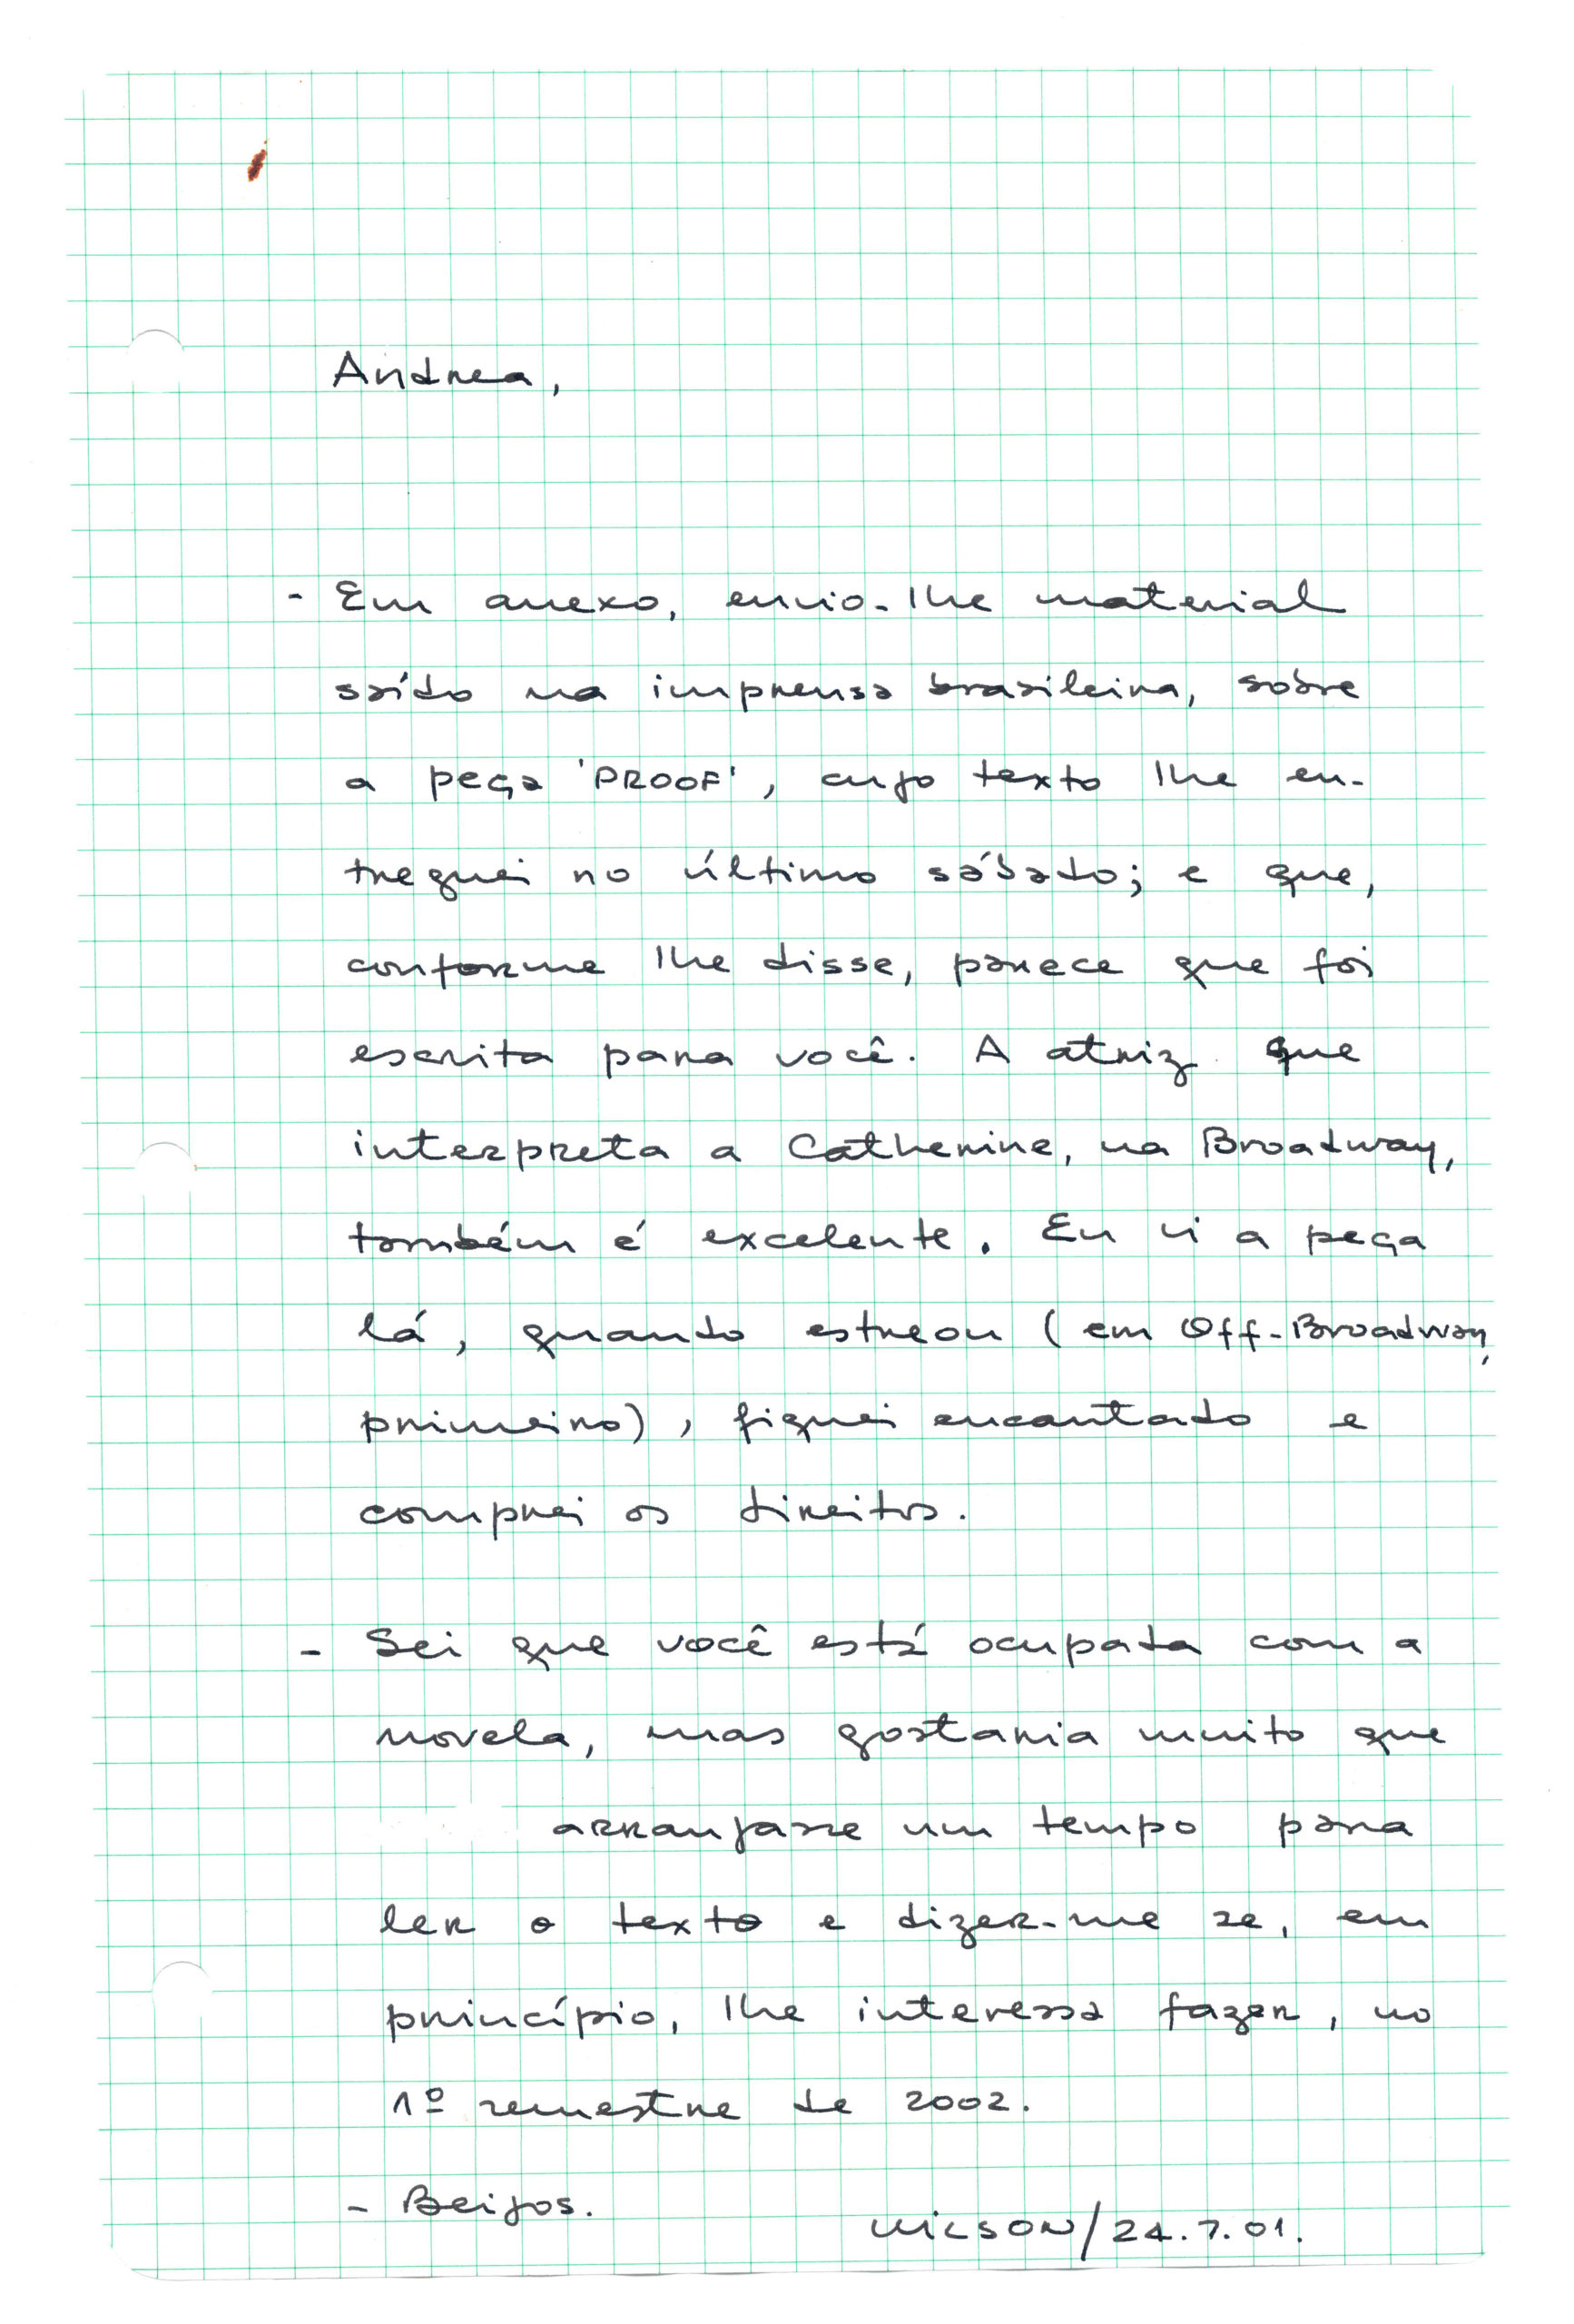 Andrea,
- Em anexo, envio-lhe material
saído na imprensa brasileira, sobre
a peça 'PROOF', cujo texto lhe en-
treguei no último sábado; e que,
conforme lhe disse, parece que foi
escrita para você. A atriz que
interpreta a Catherine, na Broadway,
também é excelente. Eu vi a peça
lá, quando estreou (em Off-Broadway,
primeiro), fiquei encantado e
comprei os direitos.
- Sei que você está ocupada com a
novela, mas gostaria muito que
arranjasse um tempo para
ler o texto e dizer-me se, em
princípio, lhe interessa fazer, no
1º semestre de 2002.
- Beijos.
WILSON/24.7.01.